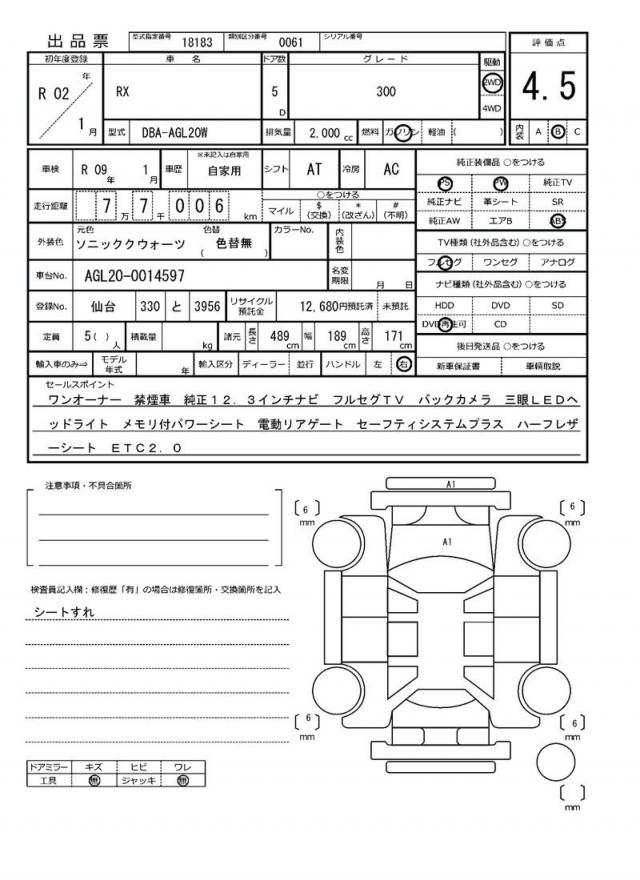 出品票 型式指定番号 18183 類別区分番号 0061 シリアル番号
初年度登録 車名 ドア数 グレード 駆動 評価点
R 02 年 RX 5 D 300 2WD 4WD 4.5
1 月 型式 DBA-AGL20W 排気量 2,000 cc 燃料 ガソリン 軽油 ( ) 内装 A B C
車検 R 09 年 1 月 車歴 ※未記入は自家用 自家用 シフト AT 冷房 AC
走行距離 7 7 万 7 千 0 0 6 km ○をつける マイル $ (交換) * (改ざん) # (不明)
外装色 元色 ソニッククウォーツ 色替 ( 色替無 ) カラーNo. 内装色
車台No. AGL20-0014597 名変期限 月 日
登録No. 仙台 330 と 3956 リサイクル預託金 12,680円預託済 未預託
定員 5( ) 人 積載量 kg 諸元 長さ 489 cm 幅 189 cm 高さ 171 cm
輸入車のみ⇒ モデル年式 年 輸入区分 ディーラー 並行 ハンドル 左 右
純正装備品 ○をつける
PS PW 純正TV
純正ナビ 革シート SR
純正AW エアB ABS
TV種類(社外品含む) ○をつける
フルセグ ワンセグ アナログ
ナビ種類(社外品含む) ○をつける
HDD DVD SD
DVD再生可 CD
後日発送品 ○をつける
新車保証書 車輌取説
セールスポイント
ワンオーナー 禁煙車 純正12.3インチナビ フルセグTV バックカメラ 三眼LEDヘ
ッドライト メモリ付パワーシート 電動リアゲート セーフティシステムプラス ハーフレザ
ーシート ETC2.0
注意事項・不具合箇所
検査員記入欄:修復歴「有」の場合は修復箇所・交換箇所を記入
シートすれ
ドアミラー キズ ヒビ ワレ
工具 無 ジャッキ 無
A1
A1
( 6 ) mm
( 6 ) mm
( 6 ) mm
( 6 ) mm
( ) mm